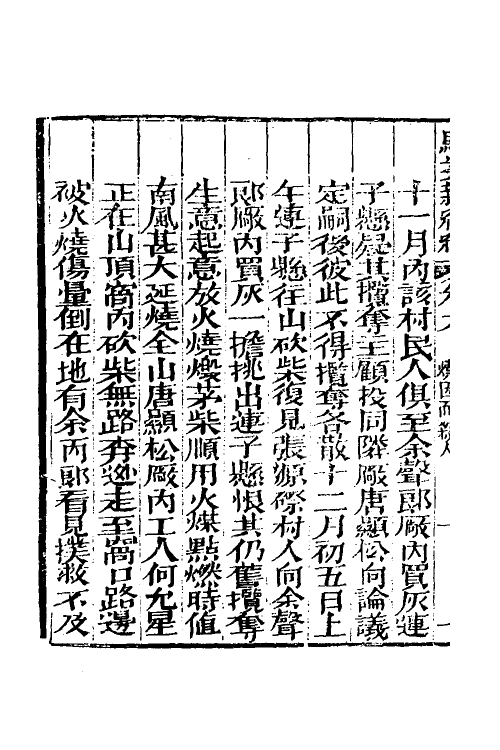 十一月內該村民人俱至余聲郎厰內買灰連
子懸疑其攬奪主顧投同隣厰唐顯松向論議
定嗣後彼此不得攬奪各散十二月初五日上
午連子懸往山砍柴復見張源磜村人向余聲
郎厰內買灰一擔挑出連子懸恨其仍舊攬奪
生意起意放火燒燬茅柴順用火煤點燃時值
南風甚大延燒全山唐顯松厰內工人何允星
正在山頂窩內砍柴無路奔逊走至窩口路邊
被火燒傷暈倒在地有余丙郎看見撲救不及